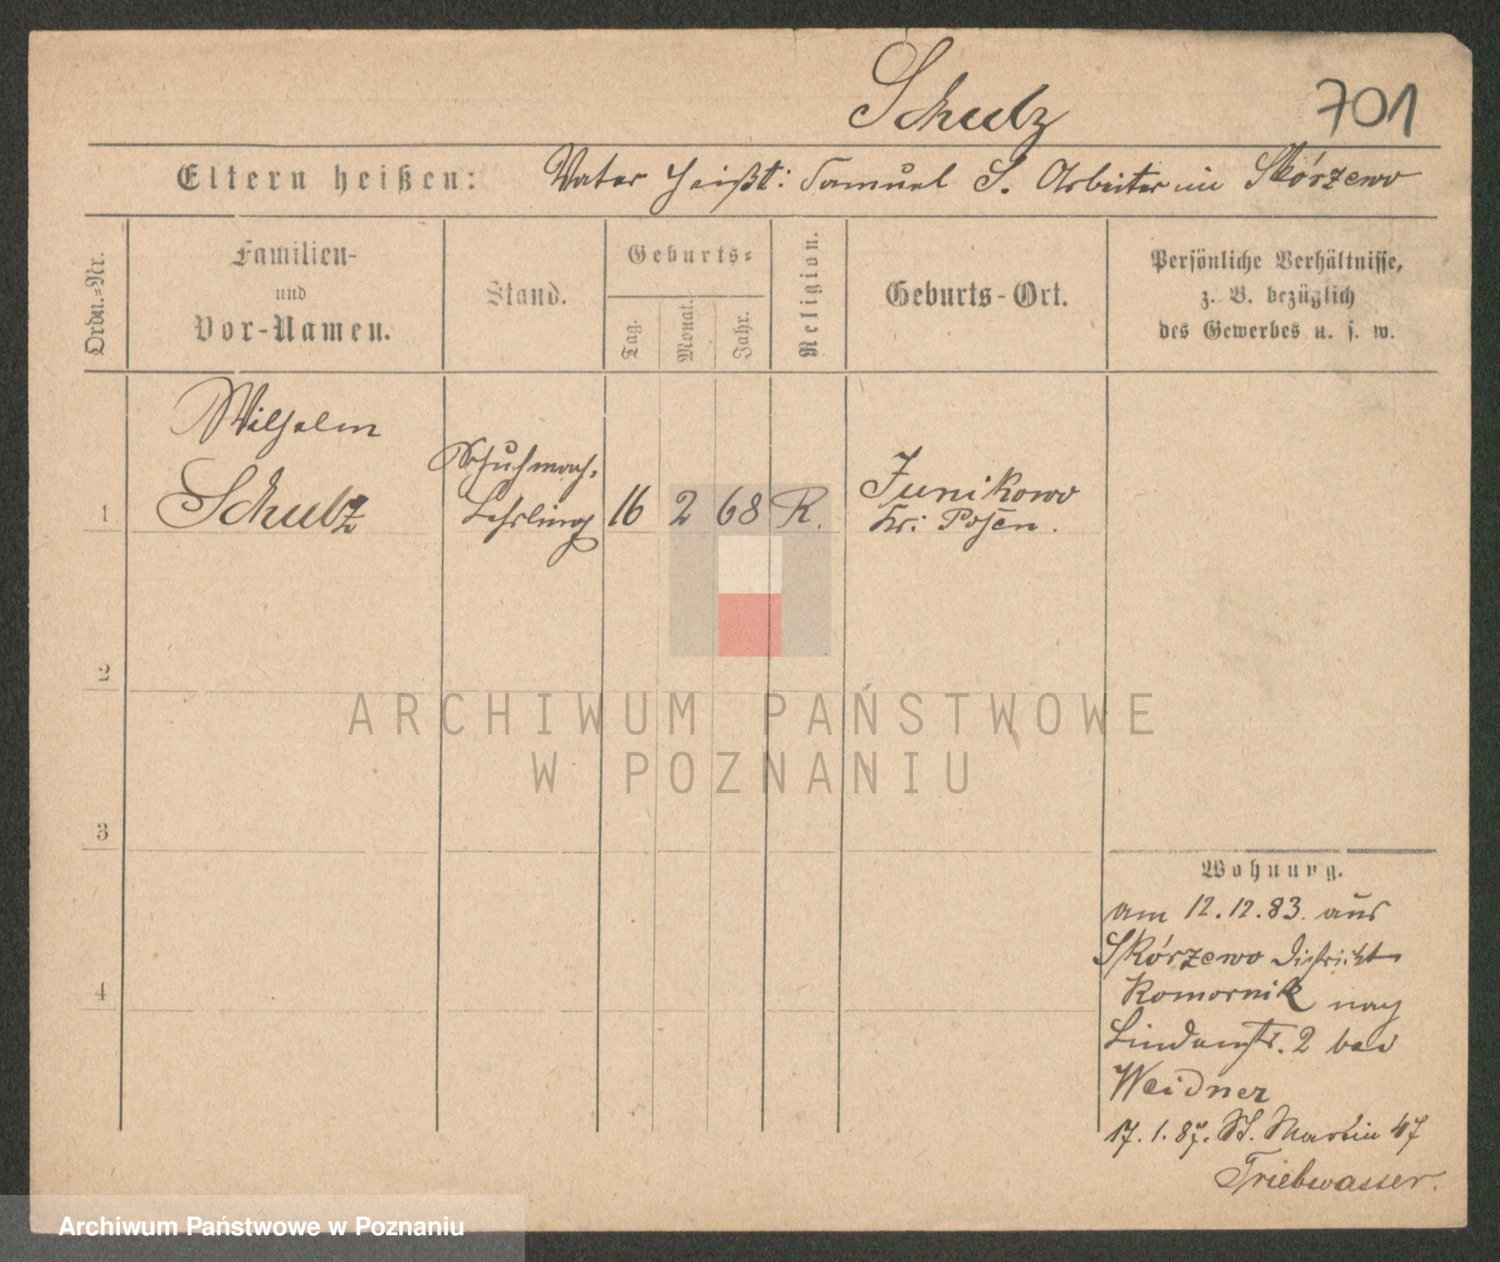 Schulz 701
Eltern heißen: Vater heißt: Samuel S. Arbeiter in Skórzewo
Ordn.=Nr.
Familien-
und
Vor-Namen.
Stand.
Geburts=
Tag.
Monat.
Jahr.
Religion.
Geburts-Ort.
Persönliche Verhältnisse,
z. B. bezüglich
des Gewerbes u. s. w.
Wilhelm
Schulz
Schuhmach.
Lehrling
1 16 2 68 K.
Junikowo
Kr: Posen.
2
3
4
Wohnung.
am 12.12.83. aus
Skórzewo District
Komornik nach
Lindenstr. 2 bei
Weidner
17.1.87. St. Martin 47
Triebwasser.
ARCHIWUM PAŃSTWOWE
W POZNANIU
Archiwum Państwowe w Poznaniu